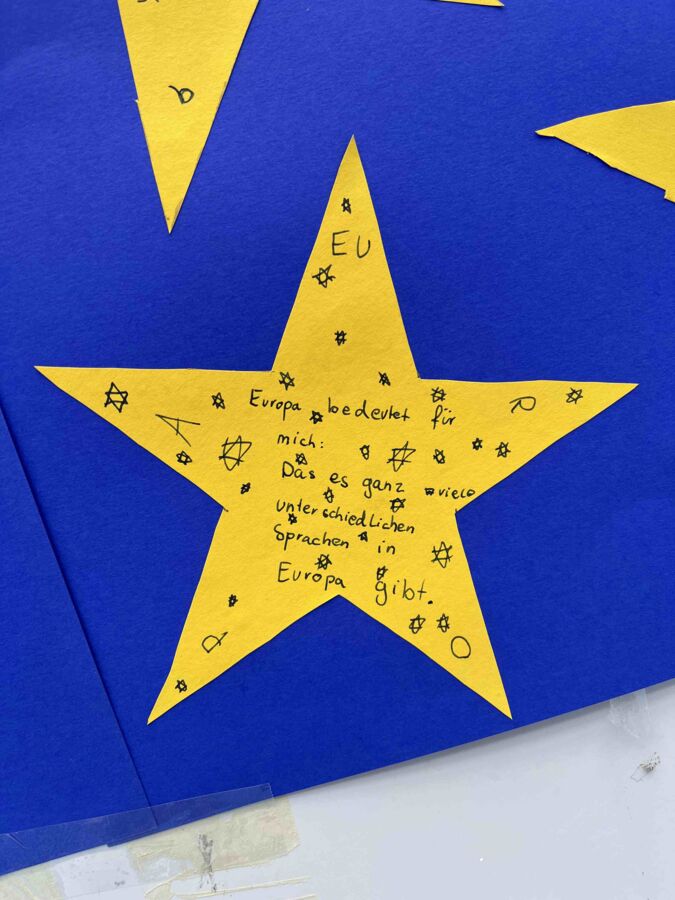 b
EU
R
O
P
A
Europa bedeutet für
mich:
Das es ganz viele
unterschiedlichen
Sprachen in
Europa gibt.